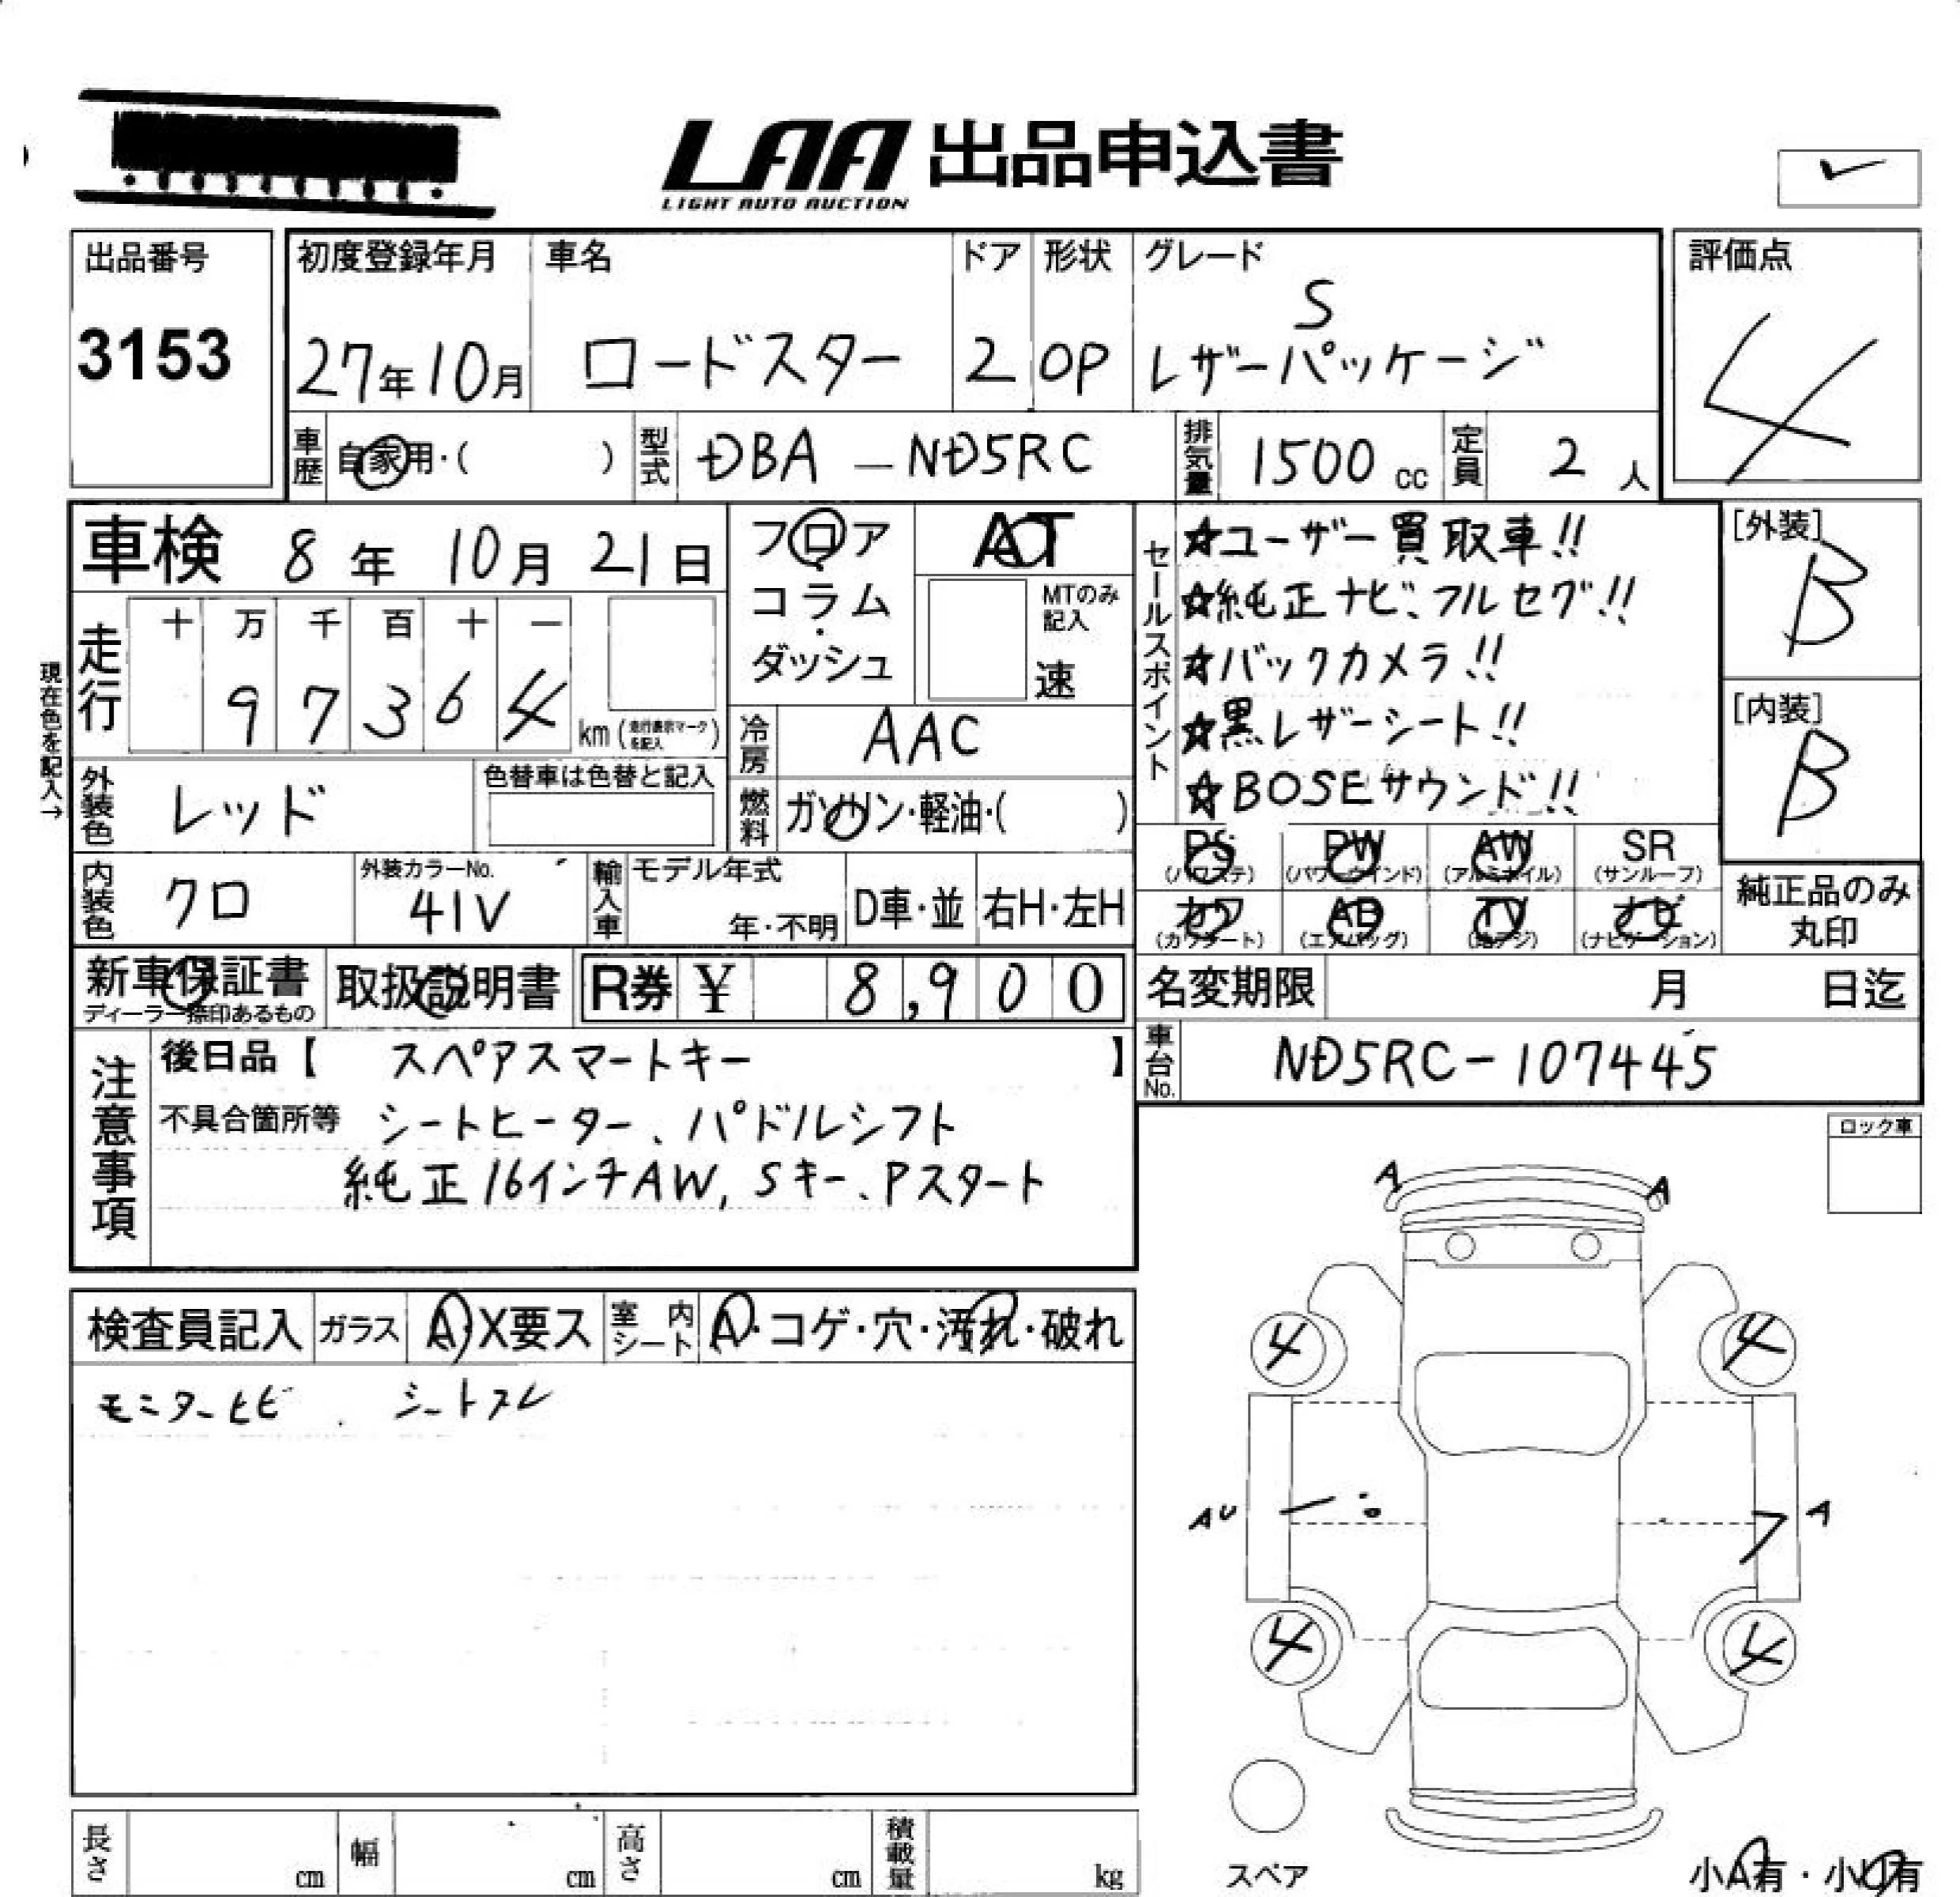 LAA 出品申込書
LIGHT AUTO AUCTION
出品番号
3153
初度登録年月
27年10月
車名
ロードスター
ドア
2
形状
OP
グレード
S
レザーパッケージ
評価点
4
車歴
自家用・( )
型式
DBA-ND5RC
排気量
1500cc
定員
2人
車検 8年10月21日
フロア
コラム・
ダッシュ
AT
MTのみ
記入
速
現在色を記入→
走行
十 万 千 百 十 一
9 7 3 6 4 km (走行表示マークを記入)
冷房
AAC
外装色
レッド
色替車は色替と記入
燃料
ガソリン・軽油・( )
内装色
クロ
外装カラーNo.
41V
輸入車
モデル年式
年・不明
D車・並
右H・左H
セールスポイント
☆ユーザー買取車!!
☆純正ナビ、フルセグ!!
☆バックカメラ!!
☆黒レザーシート!!
☆BOSEサウンド!!
[外装]
B
[内装]
B
PS PW AW SR
(パワステ) (パワーウインド) (アルミホイル) (サンルーフ)
カワ AB TV ナビ
(カワシート) (エアバッグ) (地デジ) (ナビゲーション)
純正品のみ
丸印
新車保証書
ディーラー捺印あるもの
取扱説明書
R券 ¥ 8,900
名変期限 月 日迄
車台No.
ND5RC-107445
注意事項
後日品【 スペアスマートキー 】
不具合箇所等 シートヒーター、パドルシフト
純正16インチAW, Sキー、Pスタート
ロック車
検査員記入
ガラス
A・X要ス
室内シート
A・コゲ・穴・汚れ・破れ
モニターヒビ . シートスレ
A A
4 4
AU A
7
4 4
スペア
長さ cm
幅 cm
高さ cm
積載量 kg
小A有・小U有